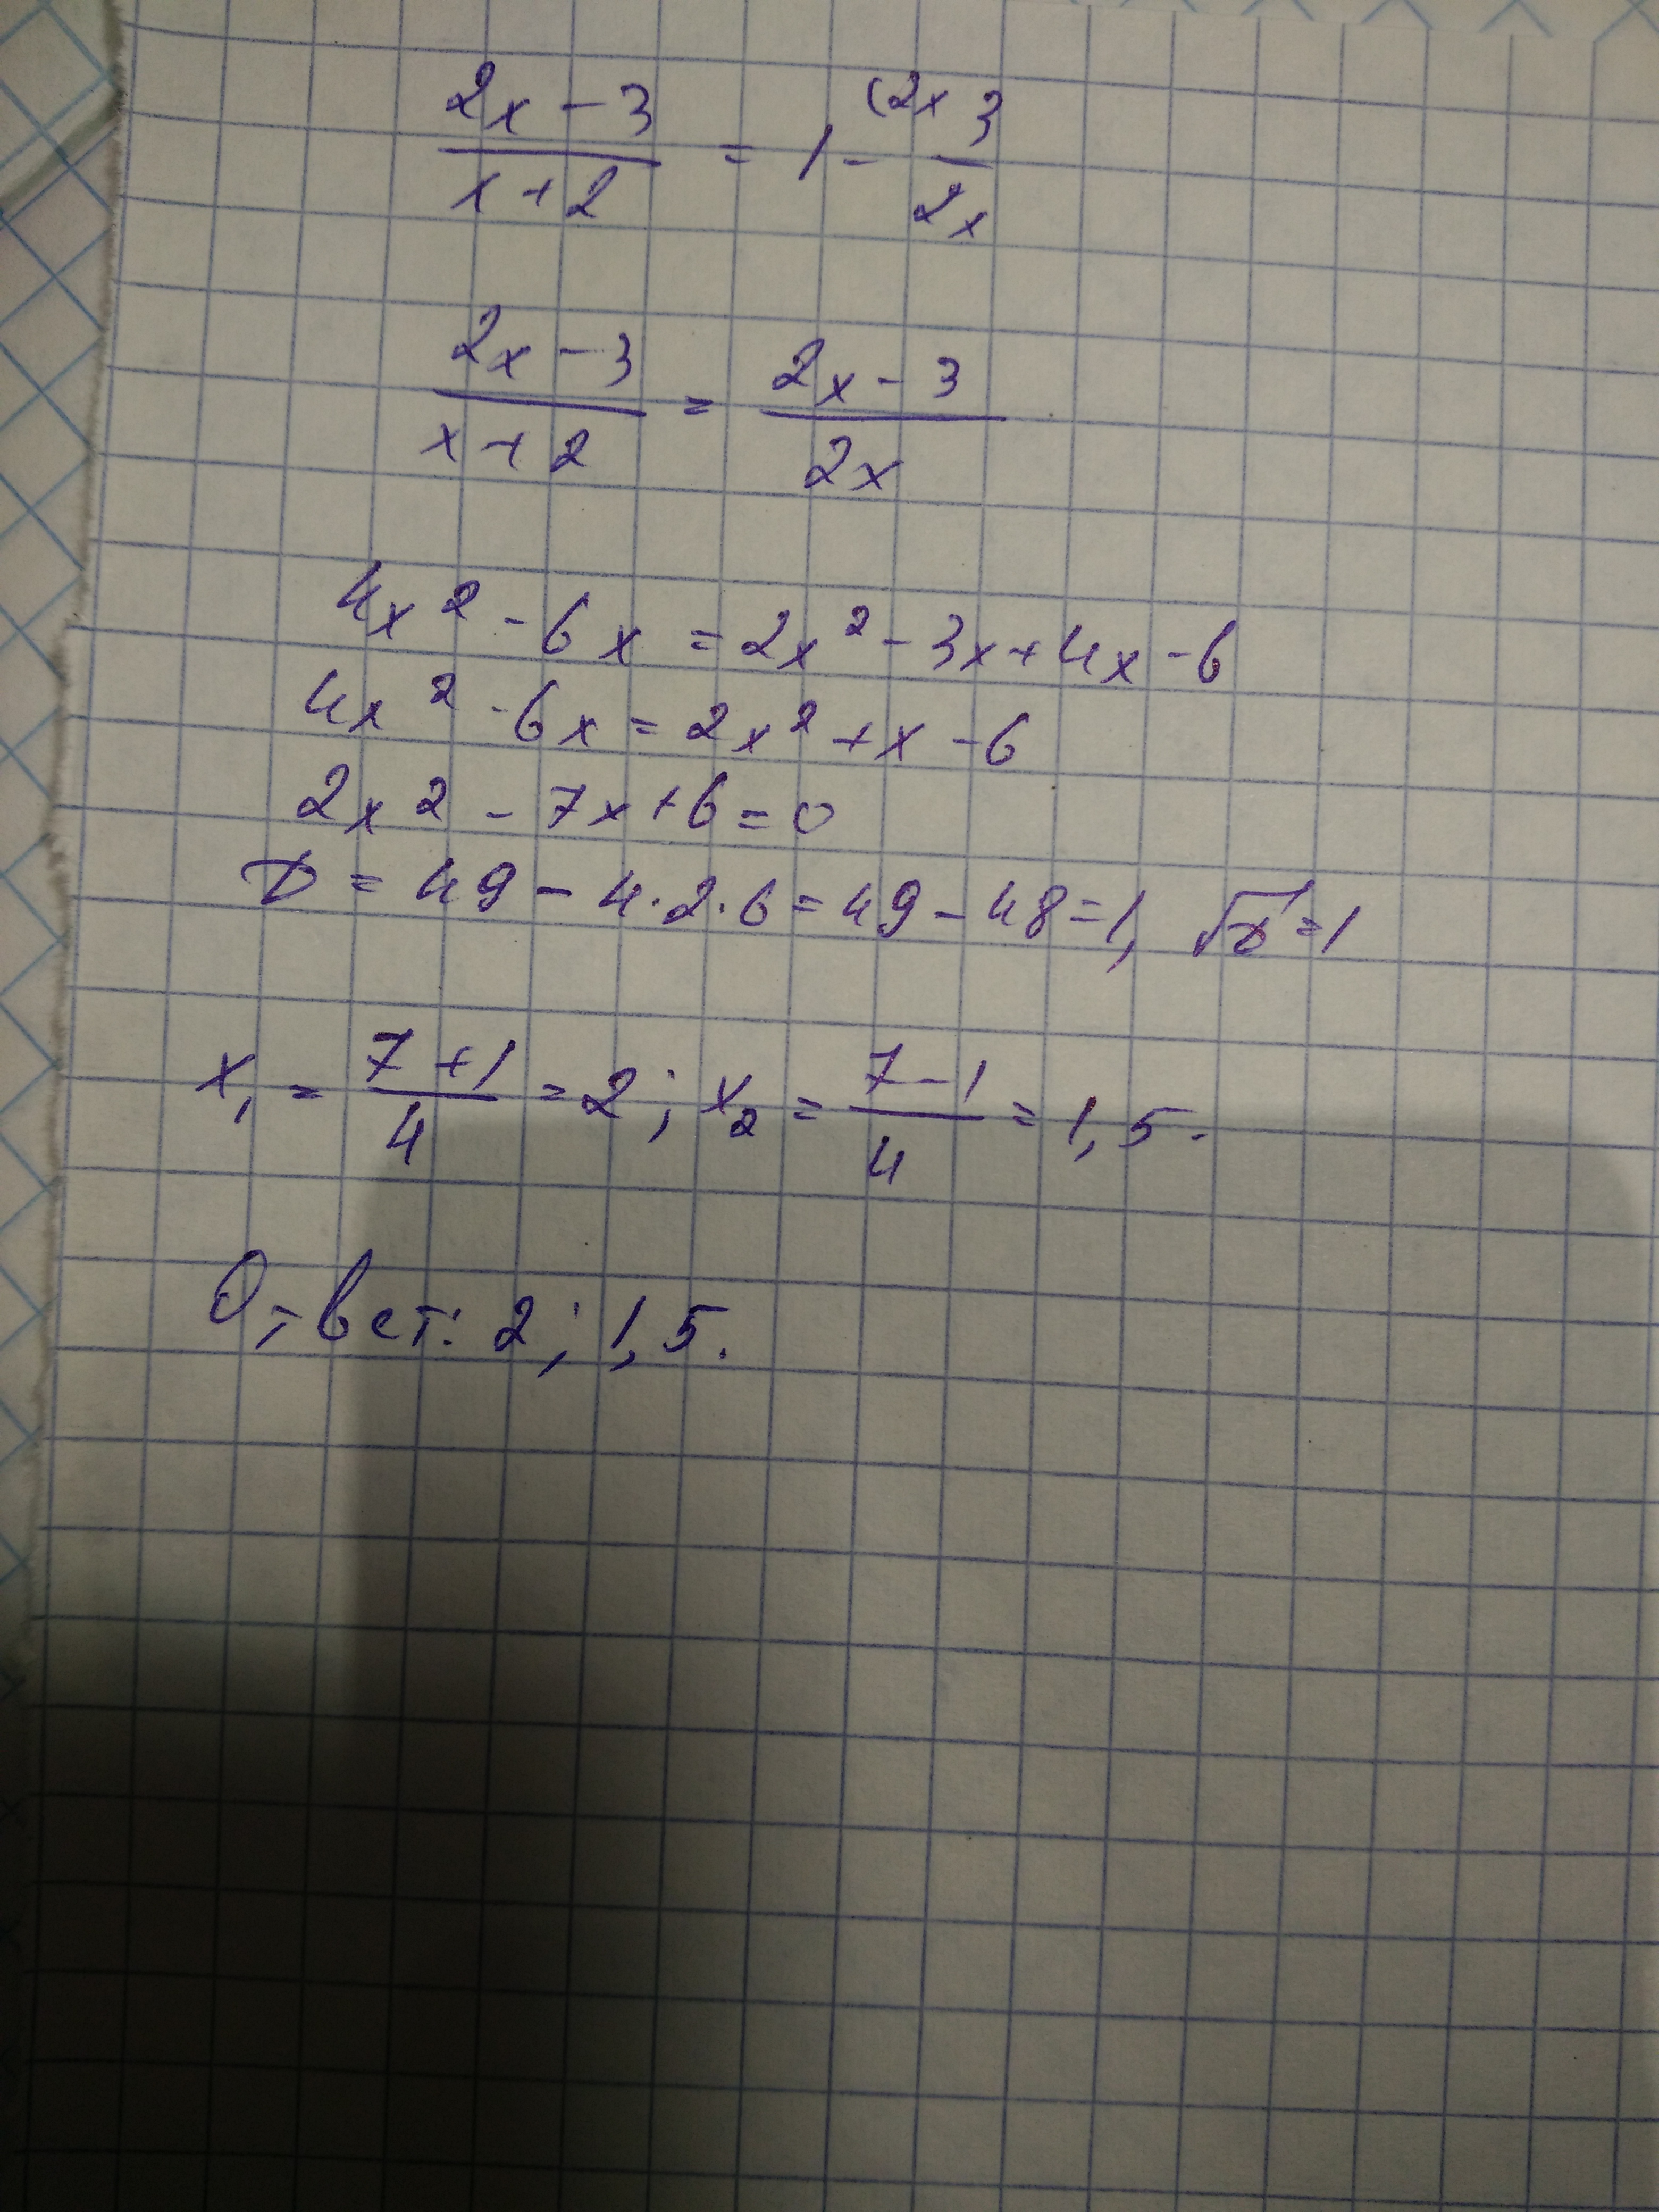 (2x-3)/(x+2) = 1 - (2x 3/2x
(2x-3)/(x+2) = (2x-3)/2x
4x² - 6x = 2x² - 3x + 4x - 6
4x² - 6x = 2x² + x - 6
2x² - 7x + 6 = 0
D = 49 - 4·2·6 = 49 - 48 = 1, √D = 1
x₁ = (7+1)/4 = 2; x₂ = (7-1)/4 = 1,5.
Ответ: 2; 1,5.